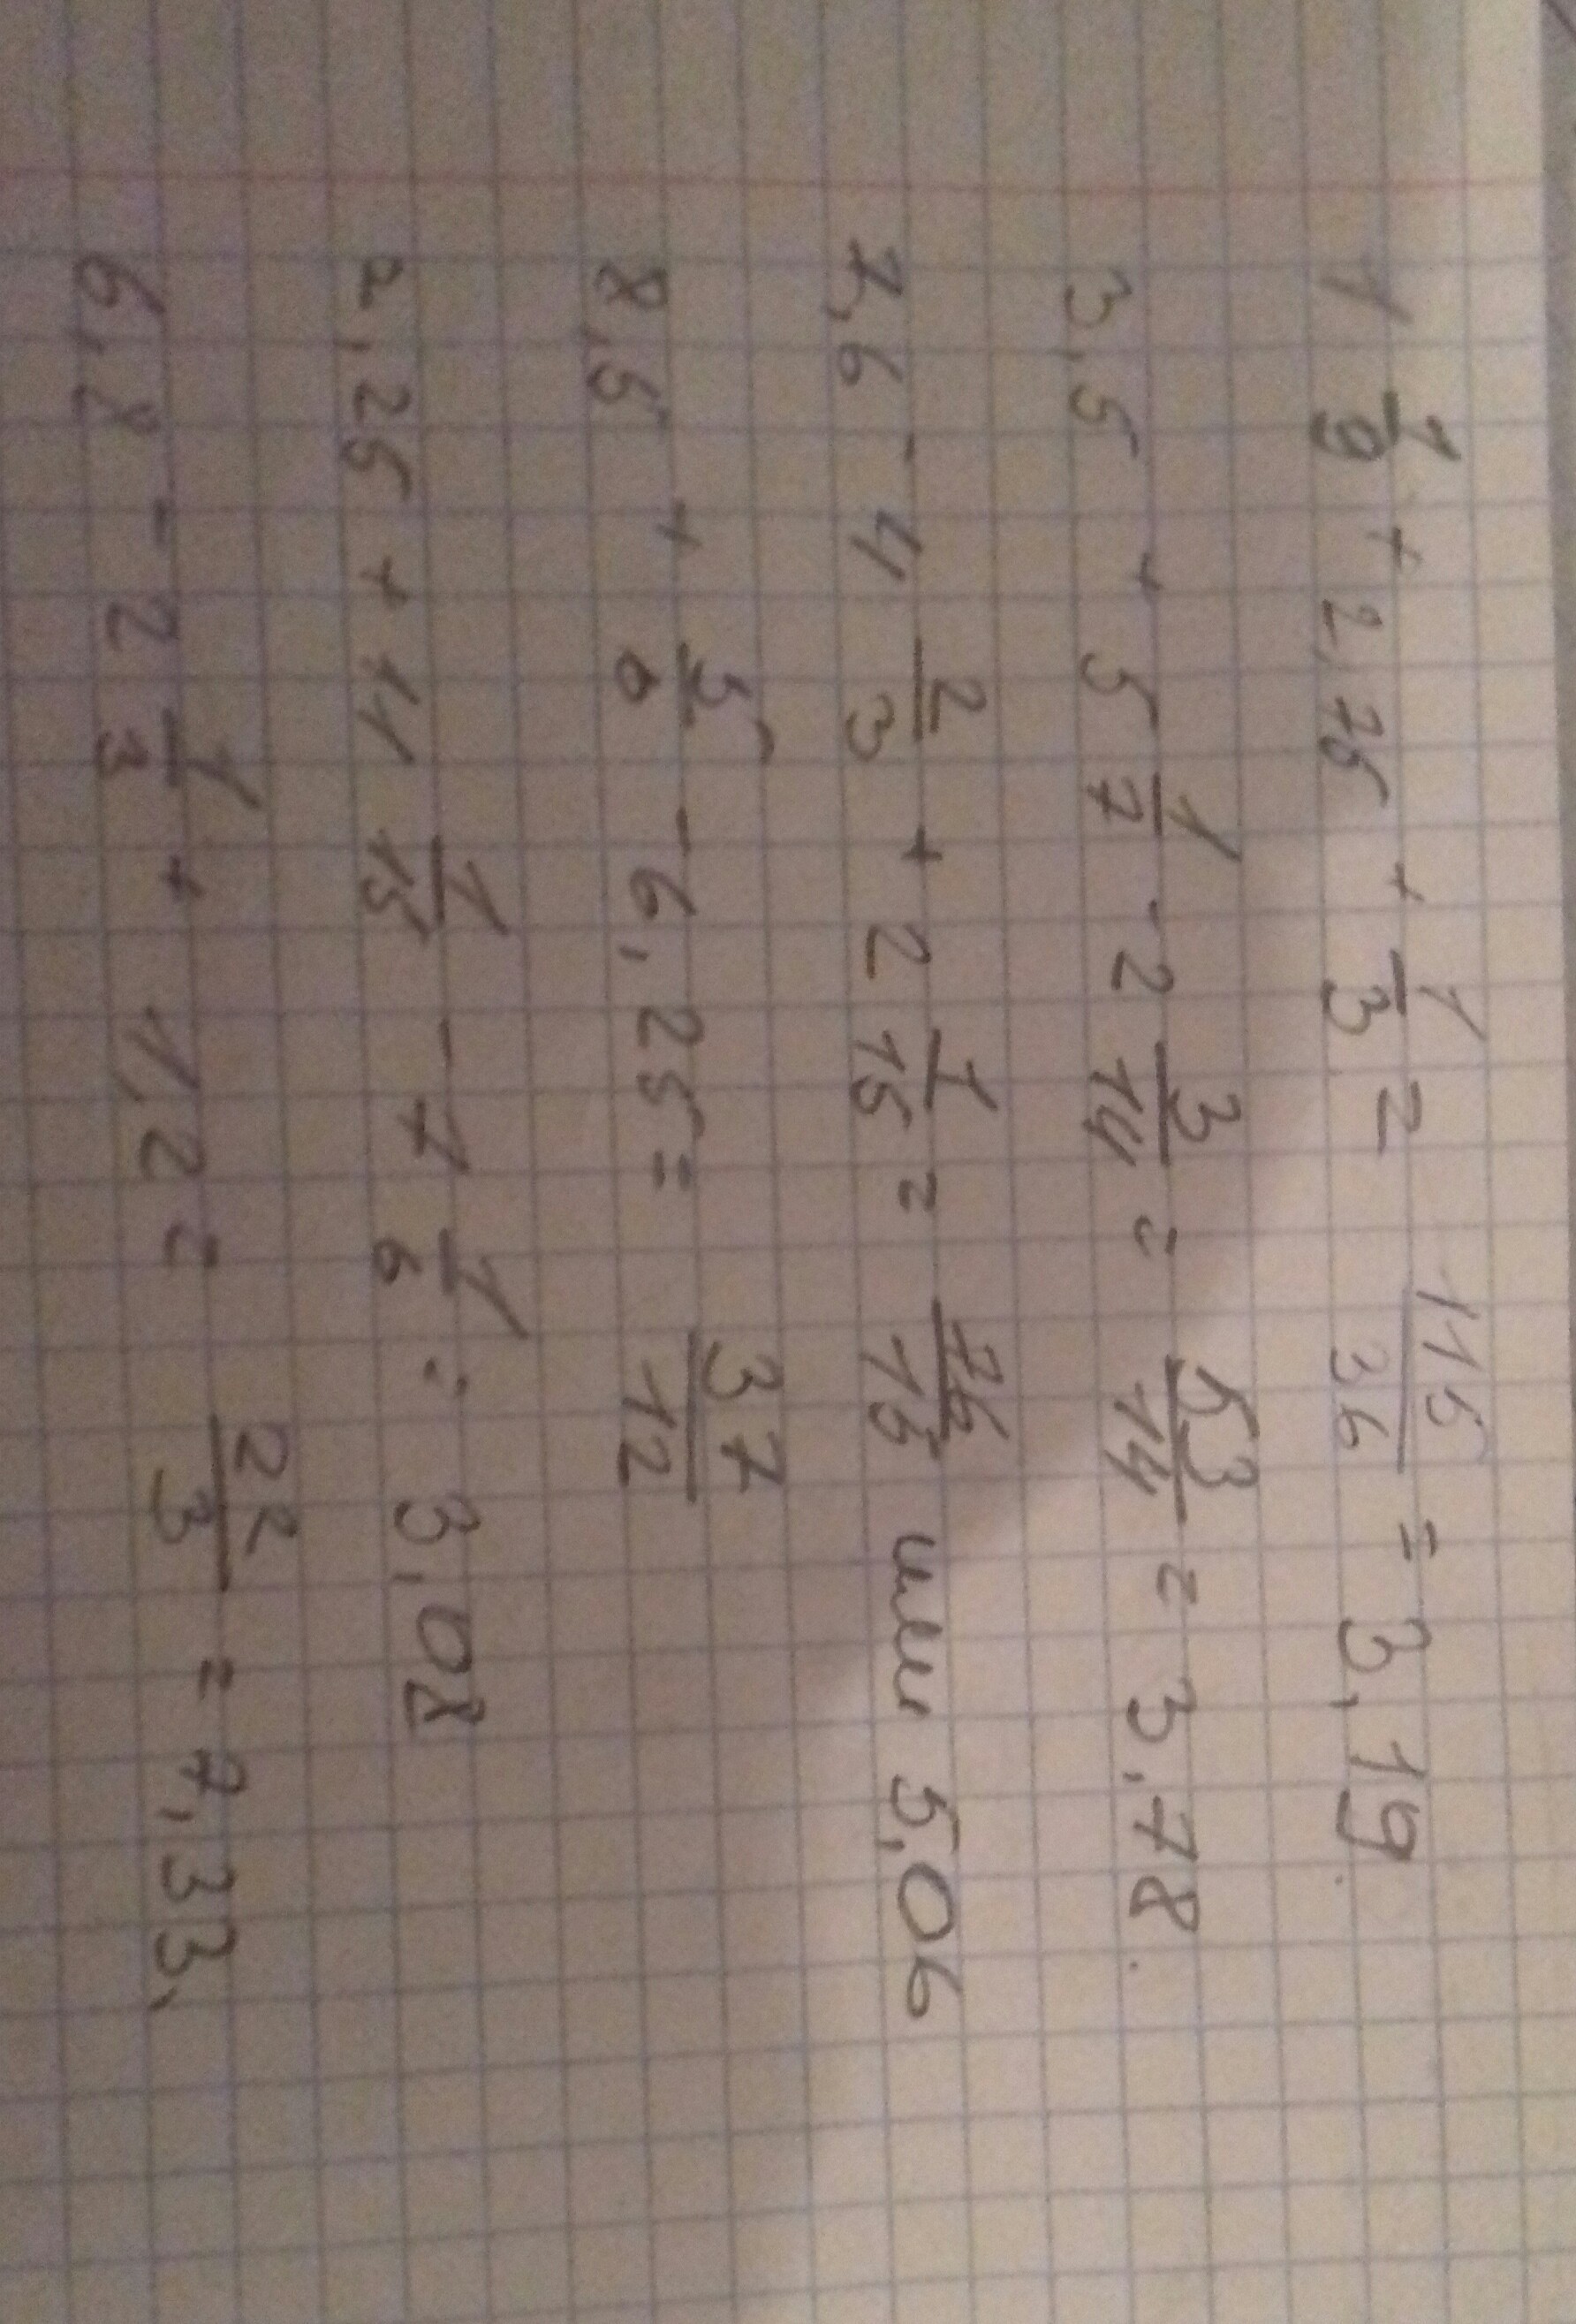 1 1/9 + 2,75 + 1/3 = 115/36 = 3,19.
3,5 + 5 1/7 - 2 3/14 = 53/14 = 3,78.
7,6 - 4 2/3 + 2 1/15 = 76/15 или 5,06
8,5 + 5/6 - 6,25 = 37/12
2,25 + 11 1/15 - 7 1/6 = 3,08
6,8 - 2 1/3 + 1,2 = 22/3 = 7,33,